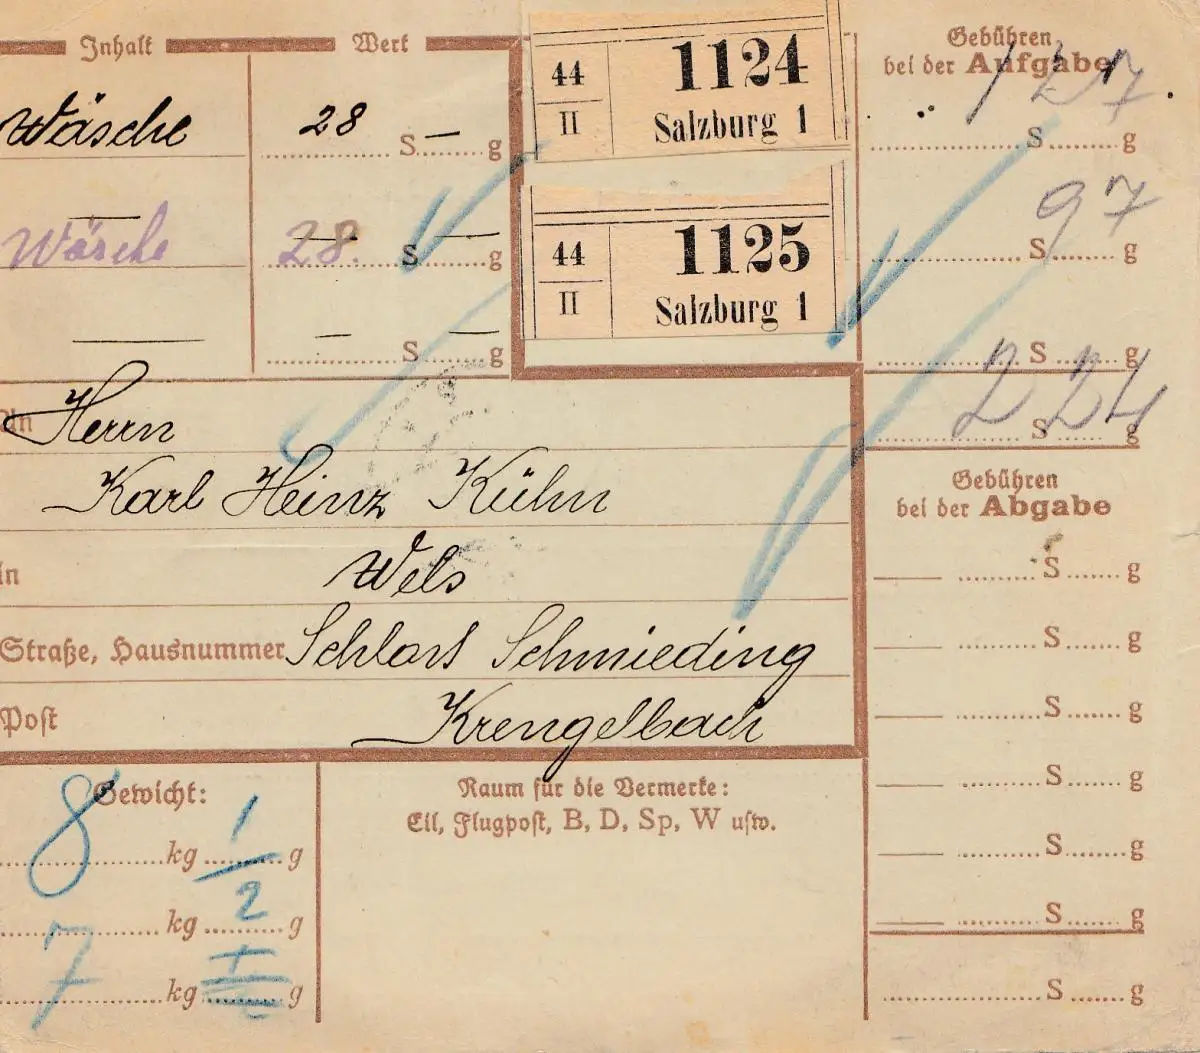 Inhalt Wert
Wäsche 28 S — g
Wäsche 28. S — g
— — S — g
44
II
1124
Salzburg 1
44
II
1125
Salzburg 1
Gebühren
bei der Aufgabe
1 27
S g
97
S g
S g
2 24
S g
An Herrn
Karl Heinz Kühn
in Wels
Straße, Hausnummer Schloss Schmieding
Post Krengelbach
Gebühren
bei der Abgabe
S g
S g
S g
S g
S g
S g
S g
Gewicht:
8 kg 1/2 g
kg g
7 kg g
Raum für die Vermerke:
Eil, Flugpost, B, D, Sp, W usw.